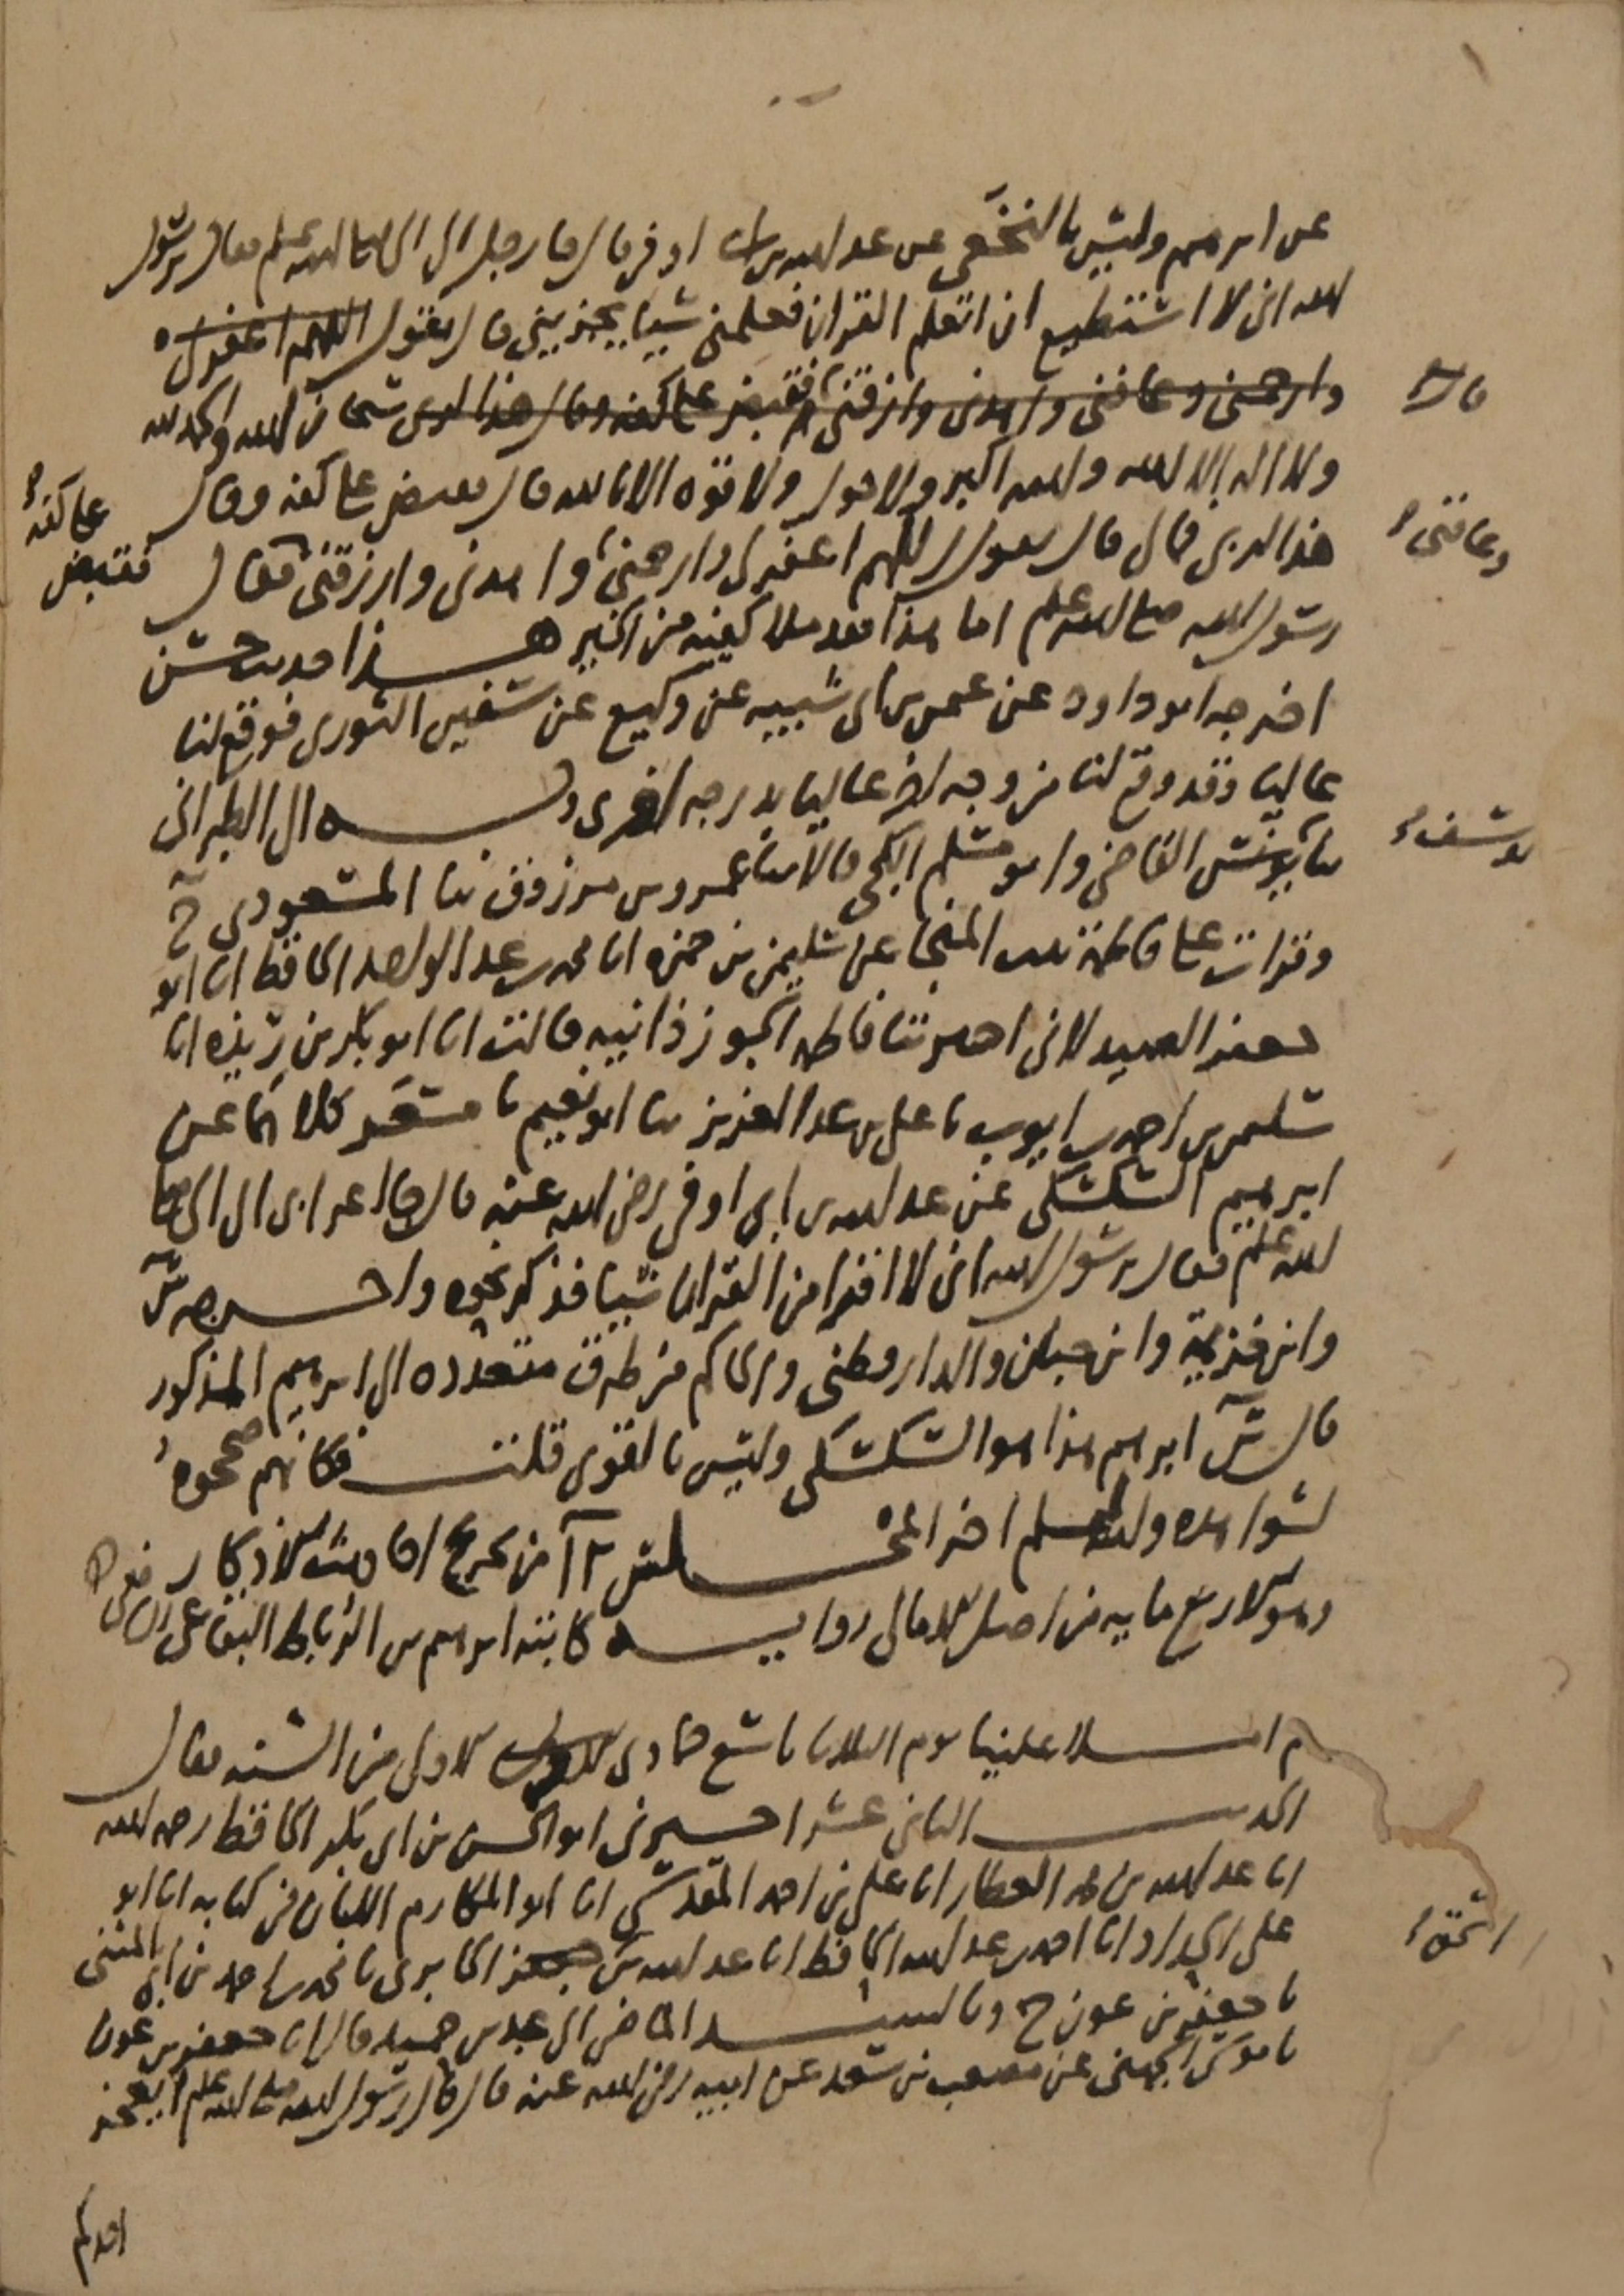 عن ابرهيم وليس بالنخعي عن عبد الله بن ابى اوفى قال جا رجل الى النبي صلى الله عليه وسلم فقال يرسول
الله انى لا استطيع ان اتعلم القران فعلمني شييا يجزيني قال تقول اللهم اغفر لى
وارحمني وعافني واهدني وارزقني فقبض على كفه وقال هذا لربى سبحان الله والحمد لله
قال
ولا اله الا الله والله اكبر ولا حول ولا قوه الا بالله قال فقبض على كفه وقال
هذا لربي فمالي قال تقول اللهم اغفر لى وارحمني واهدني وارزقني فقال
وعافني
فقبض على كفه
رسول الله صلى الله عليه وسلم اما هذا فقد ملا كفيه من الخير هذا حديث حسن
اخرجه ابو داود عن عثمن بن ابى شيبه عن وكيع عن سفين الثورى فوقع لنا
عاليا وقد وقع لنا من وجه اخر عاليا بدرجه اخرى وبه الى الطبرانى
ثنا يوسف القاضى وابو مسلم الكجى قالا ثنا عمرو بن مرزوق ثنا المسعودى ح
يوسف
وقرات على فاطمة بنت المنجا عن سليمن بن حمزه انا محمد بن عبد الواحد الحافظ انا ابو
جعفر الصيدلانى اخبرتنا فاطمه الجوزذانيه قالت انا ابو بكر بن ريذه انا
سليمن بن احمد بن ايوب نا على بن عبد العزيز ثنا ابو نعيم نا مسعر كلاهما عن
ابرهيم السكسكى عن عبد الله بن ابى اوفى رضى الله عنه قال جا اعرابى الى النبى صلى
الله عليه وسلم فقال يرسول الله انى لا اقرا من القران شييا فذكر نحوه واخرجه س
وابن خزيمة وابن حبان والدارقطنى والحاكم من طرق متعدده الى ابرهيم المذكور
قال س ابرهيم هذا هو السكسكى وليس بالقوى قلت فكانهم صححوه
لشواهده والله اعلم اخر المجلس من تخريج احاديث الاذكار
وهو الاربع مايه من اصل الامالى روايـه كاتبه ابرهيم بن الرباط البقاعى
ثم املا علينا يوم الثلاثا تاسع جمادى الاولى من السنه فقال
الحديث الثانى عشر اخبرنى ابو الحسن بن ابى بكر الحافظ رحمه الله
انا عبد الله بن محمد العطار انا على بن احمد المقدسى انا ابو المكارم اللبان فى كتابه انا ابو
على الحداد انا احمد بن عبد الله الحافظ انا عبد الله بن جعفر الجابرى نا محمد بن احمد بن ابى المثنى
اسحق
نا جعفر بن عون ح وبالسند الماضى الى عبد بن حميد قال انا جعفر بن عون
نا موسى الجهنى عن مصعب بن سعد عن ابيه رضى الله عنه قال قال رسول الله صلى الله عليه وسلم ايعجز
احدكم